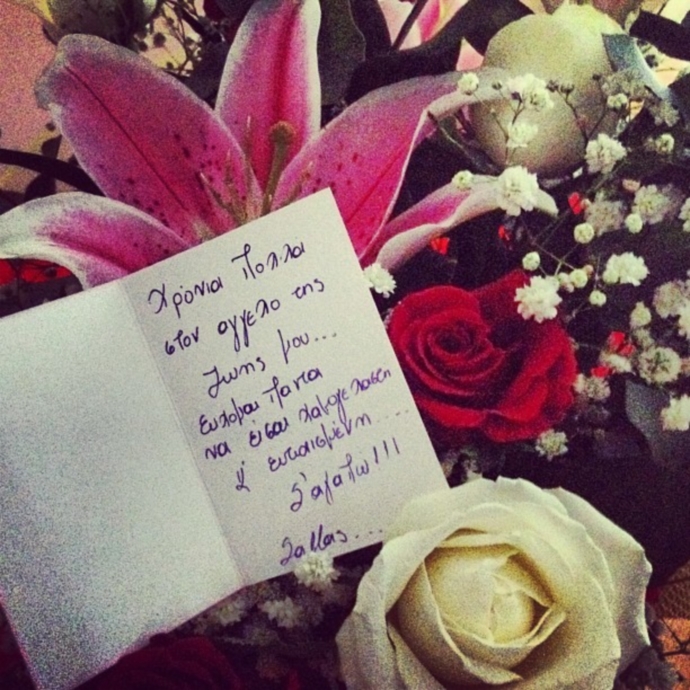 Χρόνια Πολλά
στον αγγελο της
ζωης μου...
Ευχομαι Παντα
να είσαι χαμογελαστη
κ' ευτυισμένη....
Σ'αγαπω!!!